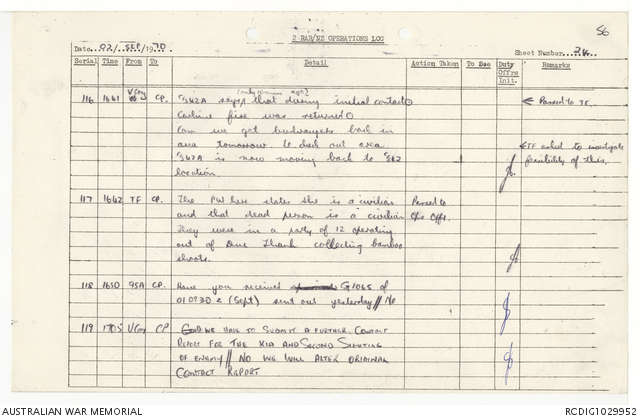 56
2 RAR/NZ OPERATIONS LOG
Date 02/SEP/1970
Sheet Number
Serial Time From To Detail Action Taken To Dae Duty Offrs Init. Remarks
116 1641 V Coy CP. that during initial contact ← Passed to TF.
Carbine fire was returned
Can we get back in
area tomorrow to check out area ← TF asked to investigate
is now moving back to feasibility of this.
location.
117 1642 TF CP. The PW here states she is a civilian Passed to
and that dead person is a civilian Offr.
They were in a party of 12 operating
out of collecting bamboo
shoots.
118 1650 95A CP. Have you received G1065 of
(Sept) sent out yesterday // No
119 1705 V Coy CP WE HAVE TO SUBMIT A FURTHER CONTACT
REPORT FOR THE KIA AND SECOND SHOOTING
OF ENEMY // NO WE WILL ALTER ORIGINAL
CONTACT REPORT
AUSTRALIAN WAR MEMORIAL
RCDIG1029952